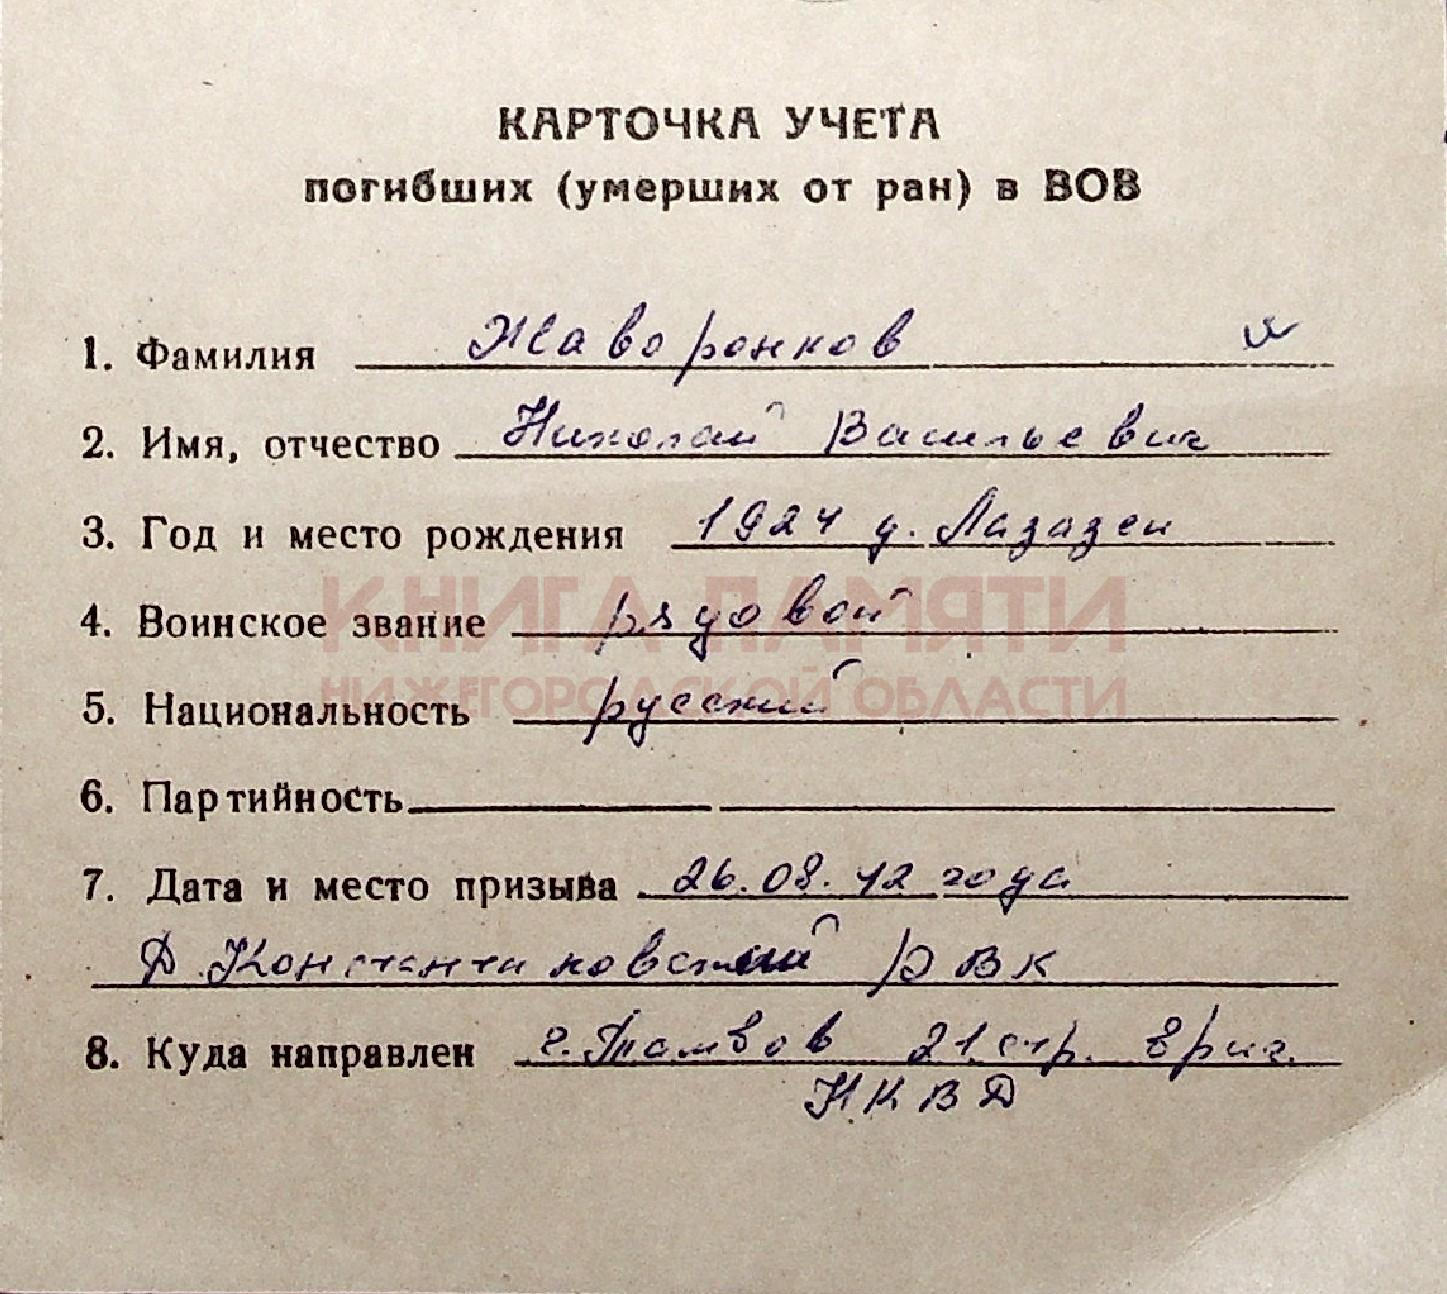 КАРТОЧКА УЧЕТА
погибших (умерших от ран) в ВОВ
1. Фамилия Жаворонков
2. Имя, отчество Николай Васильевич
3. Год и место рождения 1924 д. Лазазеи
КНИГА ПАМЯТИ
4. Воинское звание рядовой
НИЖЕГОРОДСКОЙ ОБЛАСТИ
5. Национальность русский
6. Партийность
7. Дата и место призыва 26.08.42 года
Д.Константиновский РВК
8. Куда направлен г.Тамбов 21 стр. бриг.
НКВД